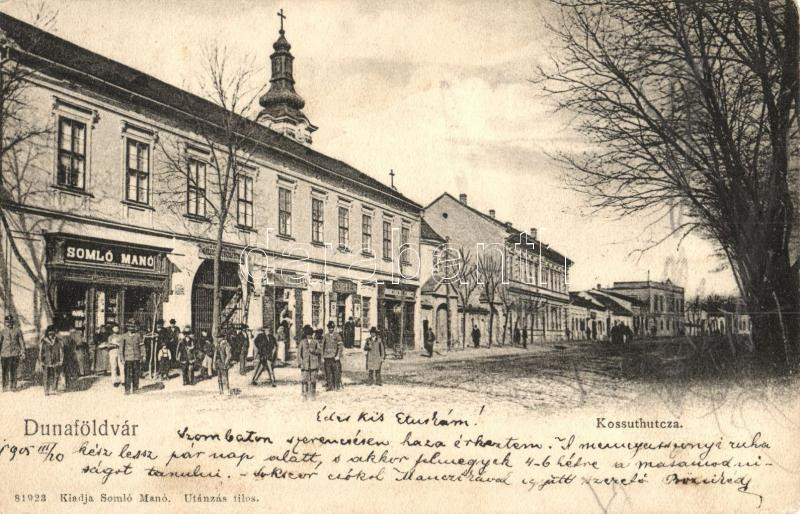 SOMLÓ MANÓ
darabanth.com
Dunaföldvár
Kossuthutcza.
Édes kis Etuskám!
1905 III/10
Szombaton szerencsésen haza érkeztem. A mennyasszonyi ruha
kész lessz pár nap alatt, s akkor felmegyek 4-6 hétre a masamodni-
ságot tanulni. Sokszor csókol Manczikával együtt szerető
81923 Kiadja Somló Manó. Utánzás tilos.